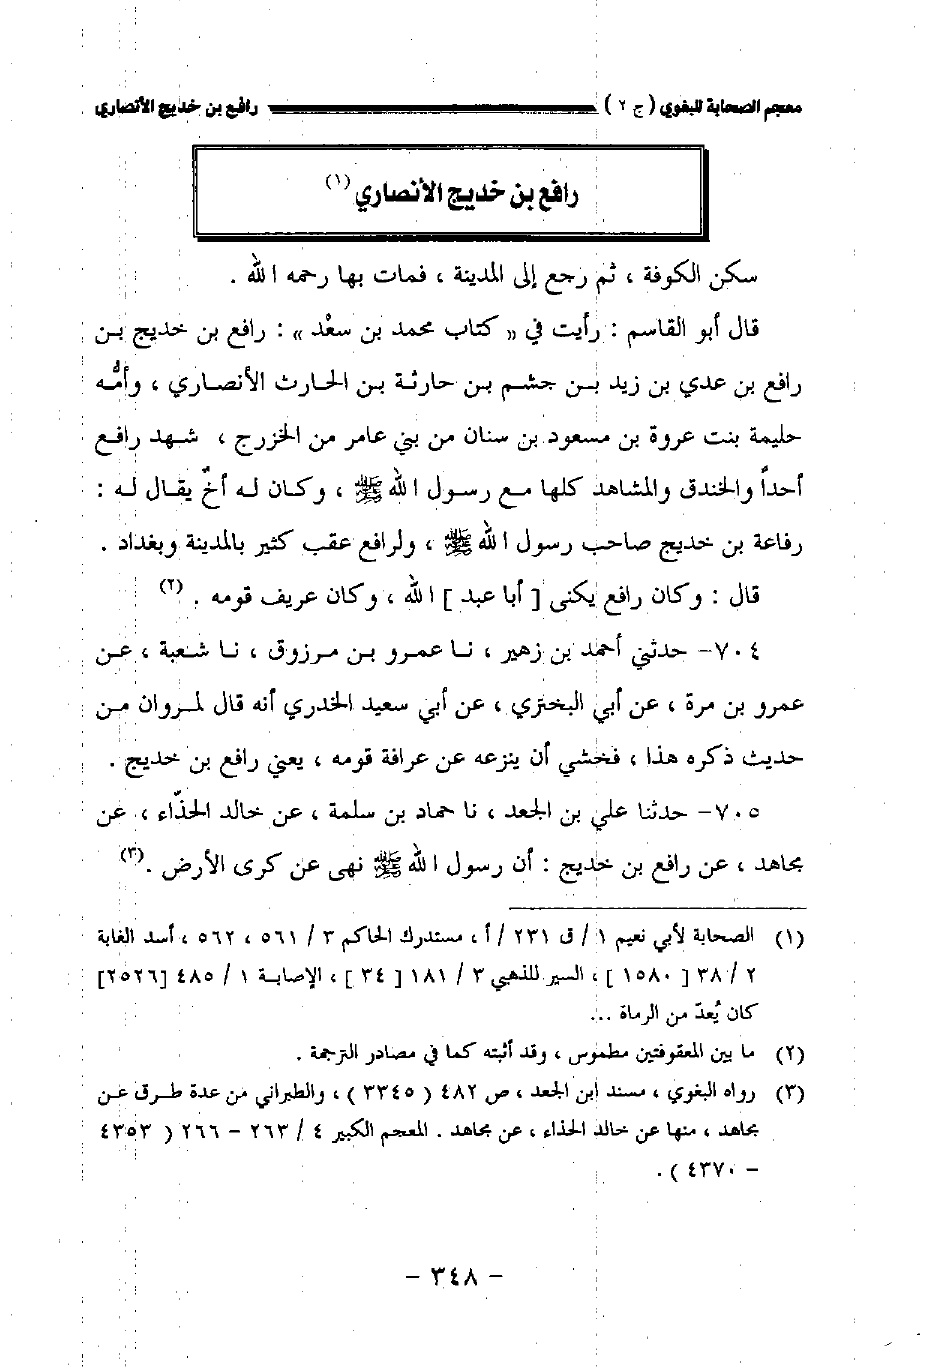 معجم الصحابة للبغوي ( ج ٢ ) رافع بن خديج الأنصاري
رافع بن خديج الأنصاري (١)
سكن الكوفة ، ثم رجع إلى المدينة ، فمات بها رحمه الله .
قال أبو القاسم : رأيت في « كتاب محمد بن سعْد » : رافع بن خديج بـن
رافع بن عدي بن زيد بـن جشـم بـن حارثـة بـن الحـارث الأنصـاري ، وأمُّـه
حليمة بنت عروة بن مسعود بن سنان من بني عامر من الخزرج ، شـهد رافـع
أحداً والخندق والمشاهد كلها مـع رسـول الله ﷺ ، وكـان لـه أخٌ يقـال لـه :
رفاعة بن خديج صاحب رسول الله ﷺ ، ولرافع عقب كثير بالمدينة وبغداد .
قال : وكان رافع يكنى [ أبا عبد ] الله ، وكان عريف قومه . (٢)
٧٠٤- حدثني أحمد بن زهير ، نـا عمـرو بـن مـرزوق ، نـا شـعبة ، عـن
عمرو بن مرة ، عن أبي البختري ، عن أبي سعيد الخدري أنه قال لمـروان مـن
حديث ذكره هذا ، فخشي أن ينزعه عن عرافة قومه ، يعني رافع بن خديج .
٧٠٥- حدثنا علي بن الجعد ، نا حماد بن سلمة ، عن خالد الحذّاء ، عن
مجاهد ، عن رافع بن خديج : أن رسول الله ﷺ نهى عن كرى الأرض . (٣)
(١) الصحابة لأبي نعيم ١ / ق ٢٣١ / أ ، مستدرك الحاكم ٣ / ٥٦١ ، ٥٦٢ ، أسد الغابة
٢ / ٣٨ [ ١٥٨٠ ] ، السير للذهبي ٣ / ١٨١ [ ٣٤ ] ، الإصابـة ١ / ٤٨٥ [٢٥٢٦]
كان يُعدّ من الرماة ...
(٢) ما بين المعقوفتين مطموس ، وقد أثبته كما في مصادر الترجمة .
(٣) رواه البغوي ، مسند ابن الجعد ، ص ٤٨٢ ( ٣٣٤٥ ) ، والطبراني من عدة طـرق عـن
مجاهد ، منها عن خالد الحذاء ، عن مجاهد . المعجم الكبير ٤ / ٢٦٣ - ٢٦٦ ( ٤٣٥٣
- ٤٣٧٠ ) .
- ٣٤٨ -